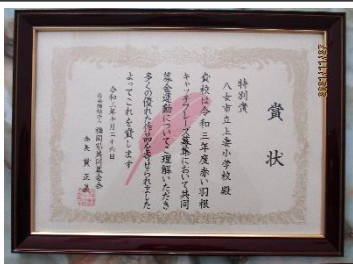 賞状
特別賞
八女市立上妻小学校 殿
貴校は令和三年度赤い羽根
キャッチフレーズ募集において共同
募金運動についてご理解いただき
多くの優れた作品を寄せられました
よってこれを賞します
令和三年十月二十六日
社会福祉法人 福岡県共同募金会
会長
正義
2021/11/27